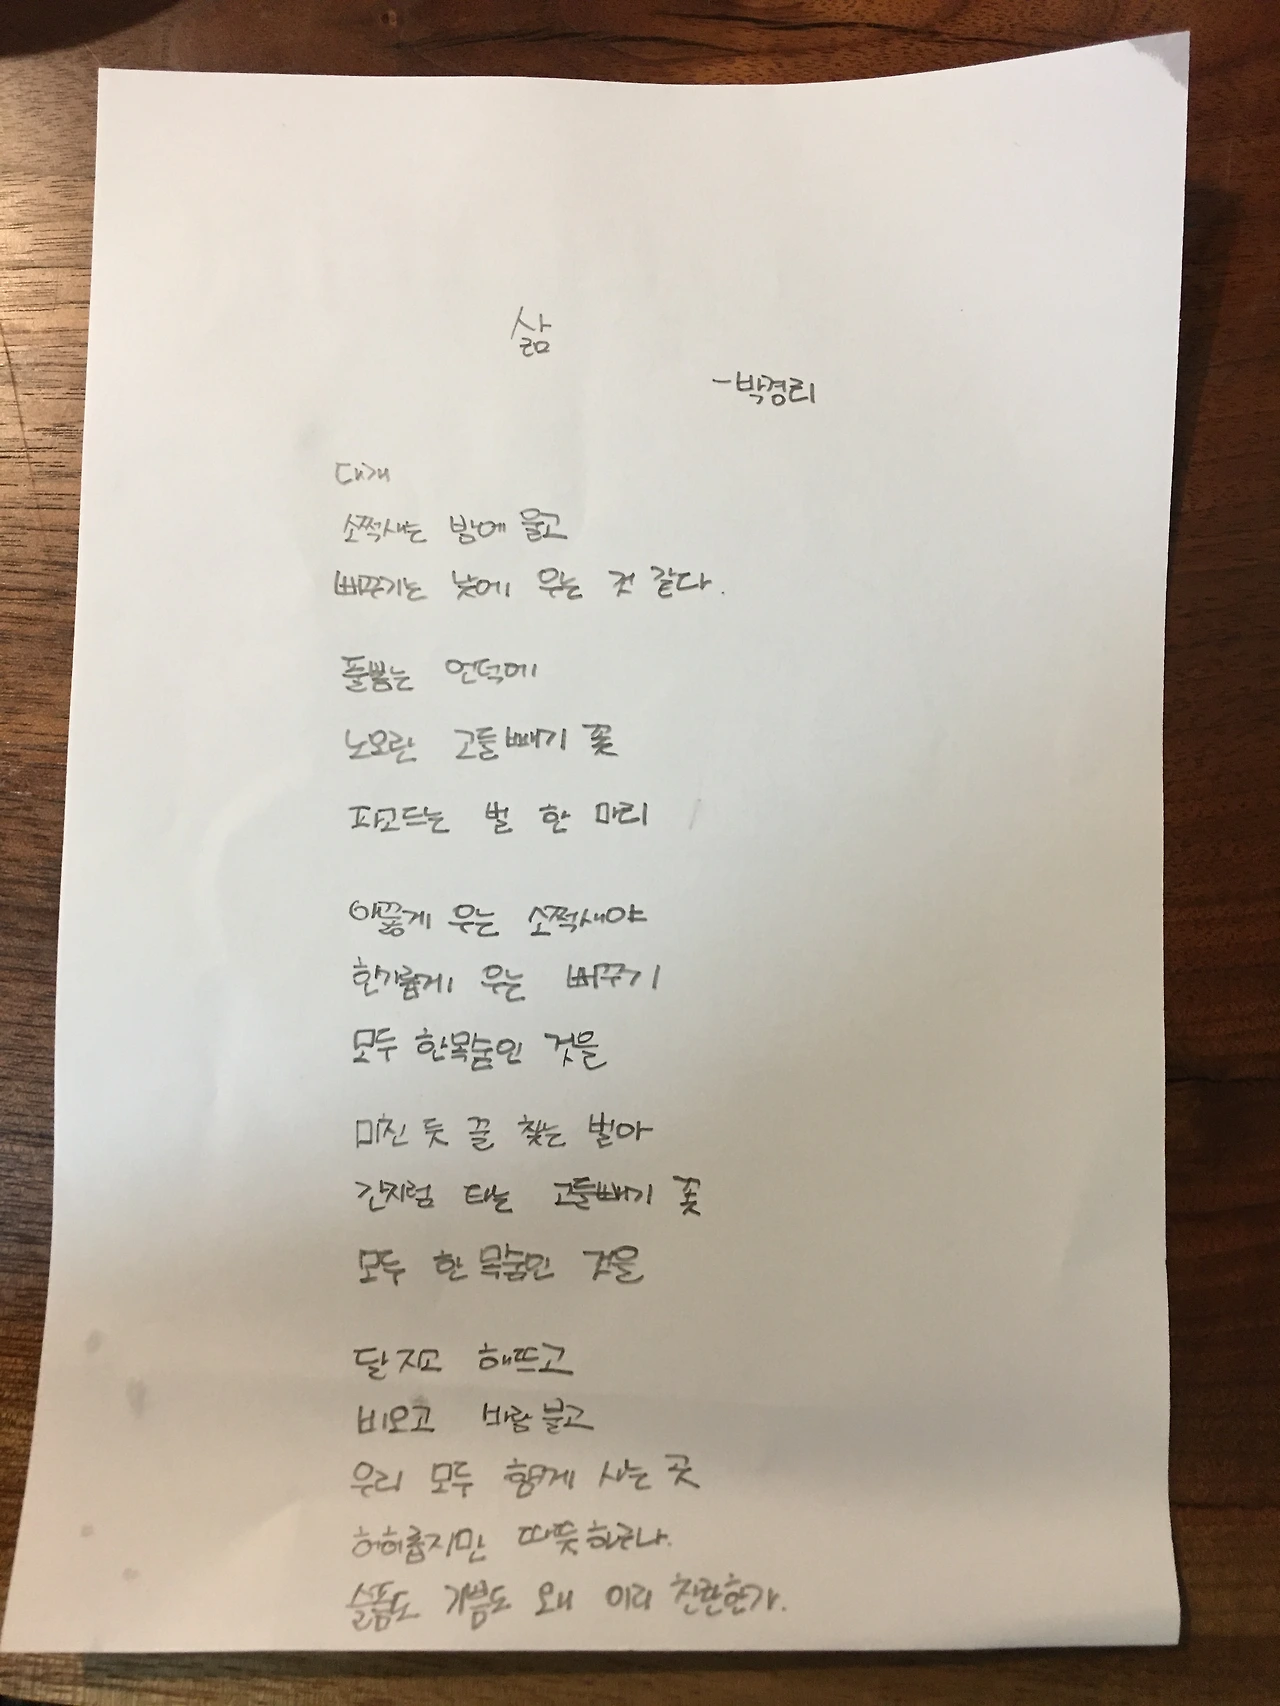 삶
-박경리
대개
소쩍새는 밤에 울고
뻐꾸기는 낮에 우는 것 같다.
풀뽑는 언덕에
노오란 고들빼기 꽃
파고드는 벌 한 마리
애끓게 우는 소쩍새야
한가롭게 우는 뻐꾸기
모두 한목숨인 것을
미친 듯 꿀 찾는 벌아
간지럼 타는 고들빼기 꽃
모두 한 목숨인 것을
달 지고 해뜨고
비오고 바람 불고
우리 모두 함께 사는 곳
허허롭지만 따뜻하구나.
슬픔도 기쁨도 왜 이리 찬란한가.